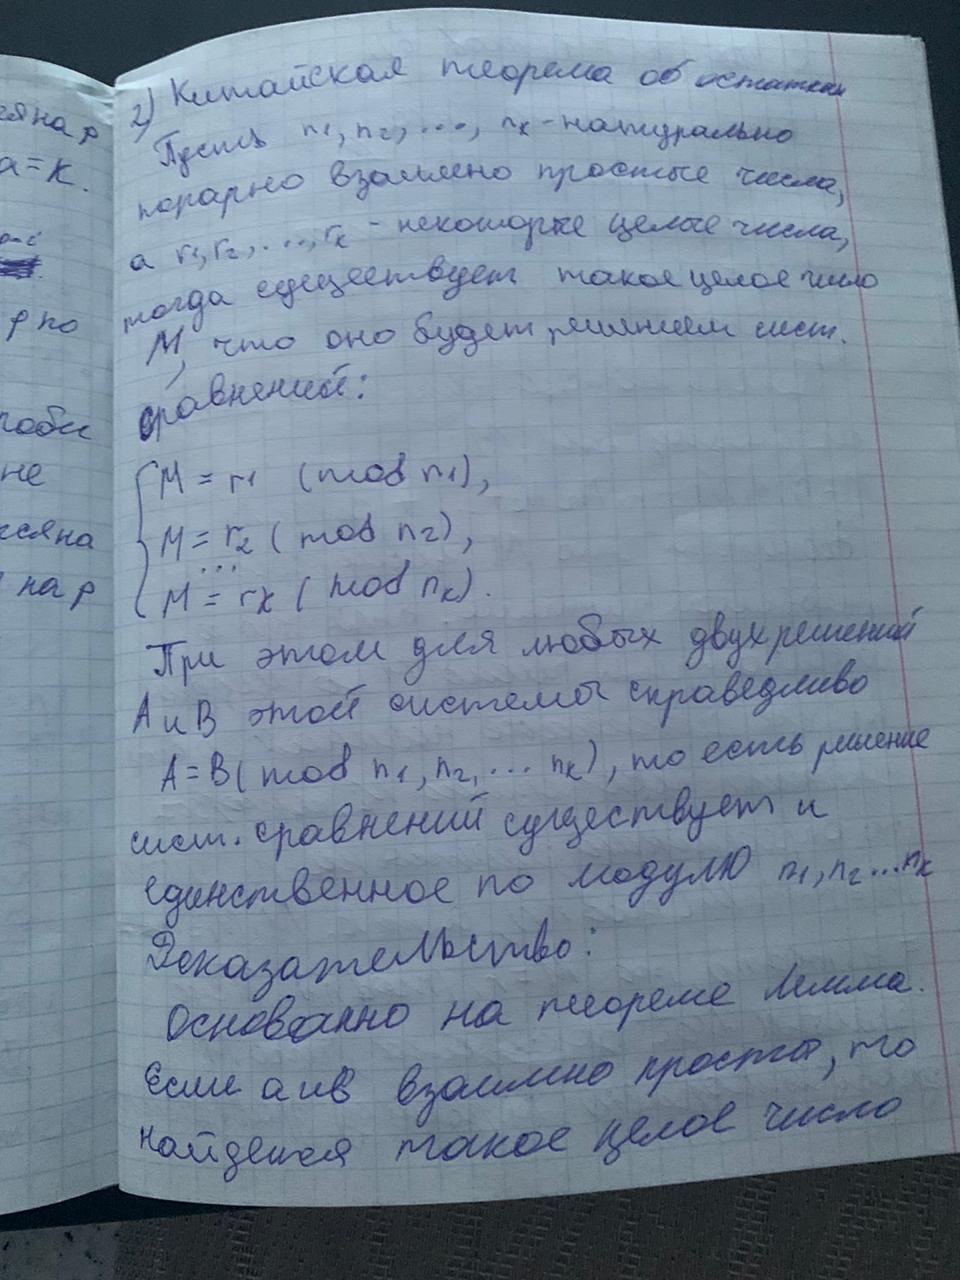 ся на р
а = К.
р по
не
ся на
на р
2) Китайская теорема об остатках
Пусть n1, n2, ..., nк - натурально
попарно взаимно простые числа,
а r1, r2, ..., rк - некоторые целые числа,
тогда существует такое целое число
М, что оно будет решением сист.
сравнений:
М = r1 (mod n1),
М = r2 (mod n2),
...
М = rк (mod nк).
При этом для любых двух решений
А и В этой системы справедливо
А = В (mod n1, n2, ... nк), то есть решение
сист. сравнений существует и
единственное по модулю n1, n2 ... nк
Доказательство:
Основанно на теореме Лемма.
Если а и в взаимно просты, то
найдется такое целое число